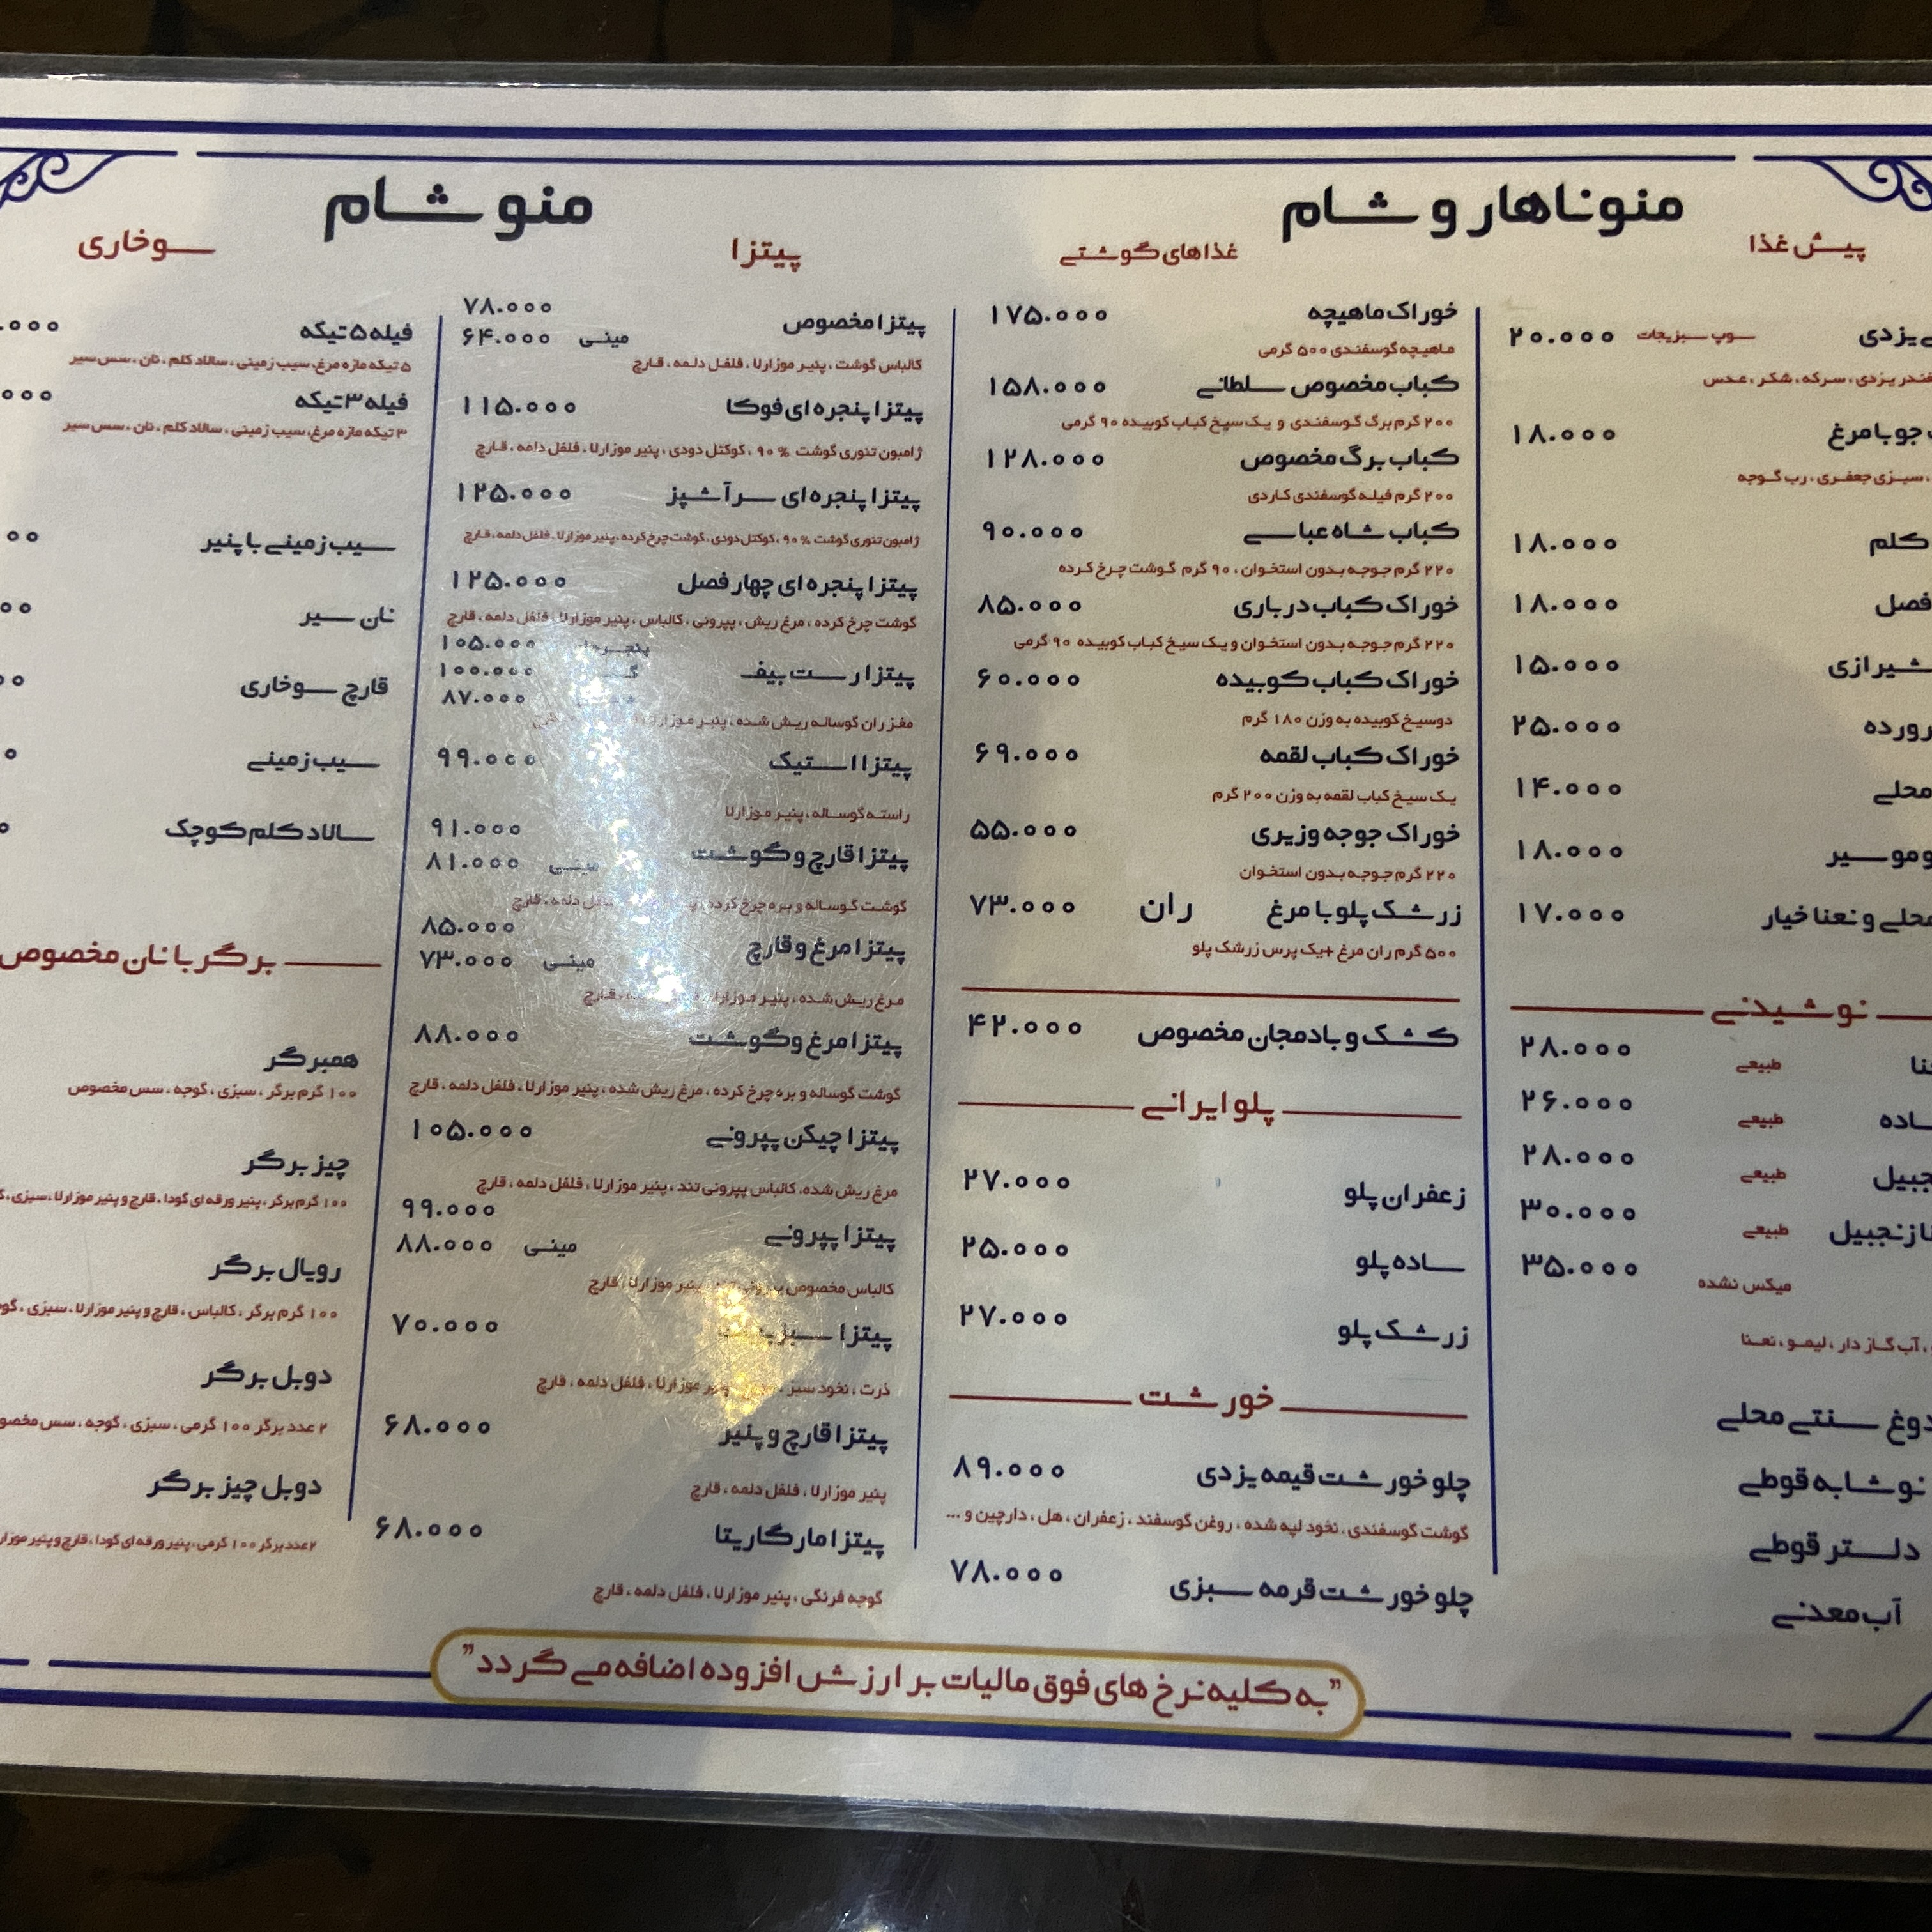 منو ناهار و شام
پیش غذا
یزدی سوپ سبزیجات ۲۰.۰۰۰
یزدی، سرکه، شکر، عدس
جو با مرغ ۱۸.۰۰۰
سبزی جعفری، رب گوجه
کلم ۱۸.۰۰۰
فصل ۱۸.۰۰۰
شیرازی ۱۵.۰۰۰
۲۵.۰۰۰
محلی ۱۴.۰۰۰
موسیر ۱۸.۰۰۰
محلی و نعنا خیار ۱۷.۰۰۰
نوشیدنی
طبیعی ۲۸.۰۰۰
طبیعی ۲۶.۰۰۰
طبیعی ۲۸.۰۰۰
زنجبیل طبیعی ۳۰.۰۰۰
میکس نشده ۳۵.۰۰۰
، آب گاز دار، لیمو، نعنا
دوغ سنتی محلی
نوشابه قوطی
دلستر قوطی
آب معدنی
غذاهای گوشتی
خوراک ماهیچه ۱۷۵.۰۰۰
ماهیچه گوسفندی ۵۰۰ گرمی
کباب مخصوص سلطانی ۱۵۸.۰۰۰
۲۰۰ گرم برگ گوسفندی و یک سیخ کباب کوبیده ۹۰ گرمی
کباب برگ مخصوص ۱۲۸.۰۰۰
۲۰۰ گرم فیله گوسفندی کاردی
کباب شاه عباسی ۹۰.۰۰۰
۲۲۰ گرم جوجه بدون استخوان، ۹۰ گرم گوشت چرخ کرده
خوراک کباب درباری ۸۵.۰۰۰
۲۲۰ گرم جوجه بدون استخوان و یک سیخ کباب کوبیده ۹۰ گرمی
خوراک کباب کوبیده ۶۰.۰۰۰
دوسیخ کوبیده به وزن ۱۸۰ گرم
خوراک کباب لقمه ۶۹.۰۰۰
یک سیخ کباب لقمه به وزن ۲۰۰ گرم
خوراک جوجه وزیری ۵۵.۰۰۰
۲۲۰ گرم جوجه بدون استخوان
زرشک پلو با مرغ ران ۷۳.۰۰۰
۵۰۰ گرم ران مرغ +یک پرس زرشک پلو
کشک و بادمجان مخصوص ۴۲.۰۰۰
پلو ایرانی
زعفران پلو ۲۷.۰۰۰
ساده پلو ۲۵.۰۰۰
زرشک پلو ۲۷.۰۰۰
خورشت
چلو خورشت قیمه یزدی ۸۹.۰۰۰
گوشت گوسفندی، نخود لپه شده، روغن گوسفند، زعفران، هل، دارچین و ...
چلو خورشت قرمه سبزی ۷۸.۰۰۰
منو شام
پیتزا
پیتزا مخصوص ۷۸.۰۰۰
مینی ۶۴.۰۰۰
کالباس گوشت، پنیر موزارلا، فلفل دلمه، قارچ
پیتزا پنجره ای فوکا ۱۱۵.۰۰۰
ژامبون تنوری گوشت ۹۰ %، کوکتل دودی، پنیر موزارلا، فلفل دلمه، قارچ
پیتزا پنجره ای سرآشپز ۱۲۵.۰۰۰
ژامبون تنوری گوشت ۹۰ %، کوکتل دودی، گوشت چرخ کرده، پنیر موزارلا، فلفل دلمه، قارچ
پیتزا پنجره ای چهار فصل ۱۲۵.۰۰۰
گوشت چرخ کرده، مرغ ریش، پپرونی، کالباس، پنیر موزارلا، فلفل دلمه، قارچ
۱۰۵.۰۰۰
پیتزا رست بیف ۱۰۰.۰۰۰
۸۷.۰۰۰
مغز ران گوساله ریش شده، پنیر موزارلا
پیتزا استیک ۹۹.۰۰۰
راسته گوساله، پنیر موزارلا
پیتزا قارچ و گوشت ۹۱.۰۰۰
مینی ۸۱.۰۰۰
گوشت گوساله و بره چرخ کرده، فلفل دلمه، قارچ
پیتزا مرغ و قارچ ۸۵.۰۰۰
مینی ۷۳.۰۰۰
مرغ ریش شده، پنیر موزارلا، قارچ
پیتزا مرغ و گوشت ۸۸.۰۰۰
گوشت گوساله و بره چرخ کرده، مرغ ریش شده، پنیر موزارلا، فلفل دلمه، قارچ
پیتزا چیکن پپرونی ۱۰۵.۰۰۰
مرغ ریش شده، کالباس پپرونی تند، پنیر موزارلا، فلفل دلمه، قارچ
پیتزا پپرونی ۹۹.۰۰۰
مینی ۸۸.۰۰۰
کالباس مخصوص پپرونی، پنیر موزارلا، قارچ
پیتزا سبزیجات ۷۰.۰۰۰
ذرت، نخود سبز، پنیر موزارلا، فلفل دلمه، قارچ
پیتزا قارچ و پنیر ۶۸.۰۰۰
پنیر موزارلا، فلفل دلمه، قارچ
پیتزا مارگاریتا ۶۸.۰۰۰
گوجه فرنگی، پنیر موزارلا، فلفل دلمه، قارچ
سوخاری
فیله ۵ تیکه
۵ تیکه مازه مرغ، سیب زمینی، سالاد کلم، نان، سس سیر
فیله ۳ تیکه
۳ تیکه مازه مرغ، سیب زمینی، سالاد کلم، نان، سس سیر
سیب زمینی با پنیر
نان سیر
قارچ سوخاری
سیب زمینی
سالاد کلم کوچک
برگر با نان مخصوص
همبرگر
۱۰۰ گرم برگر، سبزی، گوجه، سس مخصوص
چیز برگر
۱۰۰ گرم برگر، پنیر ورقه ای گودا، قارچ و پنیر موزارلا، سبزی،
رویال برگر
۱۰۰ گرم برگر، کالباس، قارچ و پنیر موزارلا، سبزی،
دوبل برگر
۲ عدد برگر ۱۰۰ گرمی، سبزی، گوجه، سس
دوبل چیز برگر
۲ عدد برگر ۱۰۰ گرمی، پنیر ورقه ای گودا، قارچ و پنیر
"به کلیه نرخ های فوق مالیات بر ارزش افزوده اضافه می گردد"